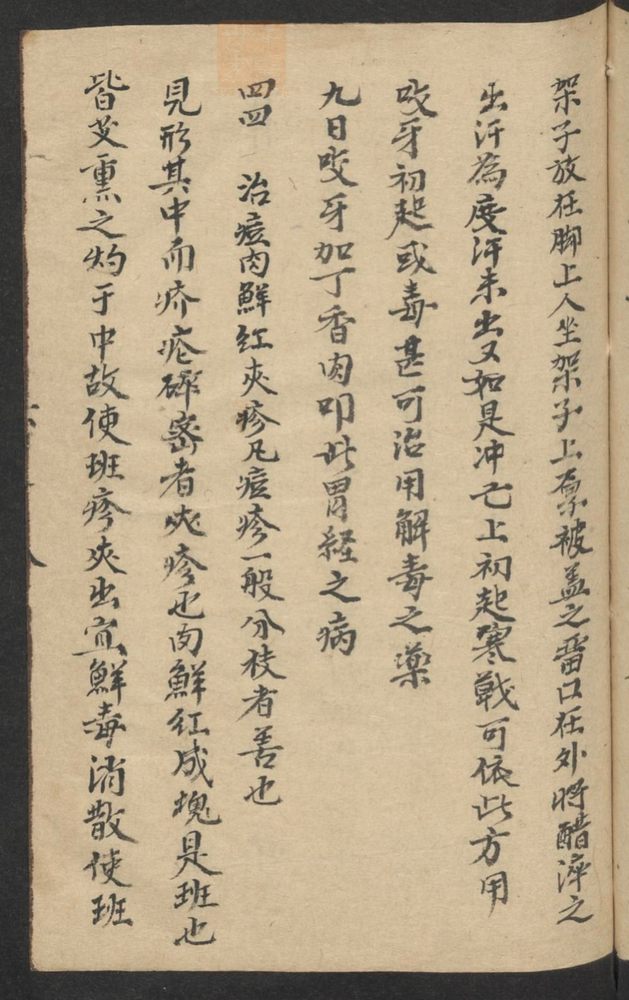 架子放在脚上人坐架子上用被盖之畱口在外将醋淬之
出汗為度汗未出又如是冲亡上初起寒戰可依此方用
咬牙初起或毒甚可治用解毒之藥
九日咬牙加丁香肉叩此胃経之病
四四 治痘肉鮮紅夾疹凡痘疹一般分枝者善也
見形其中而疥疮碎密者夾疹也肉鮮紅成塊是班也
皆艾熏之灼于中故使班疹夾出宜鮮毒消散使班